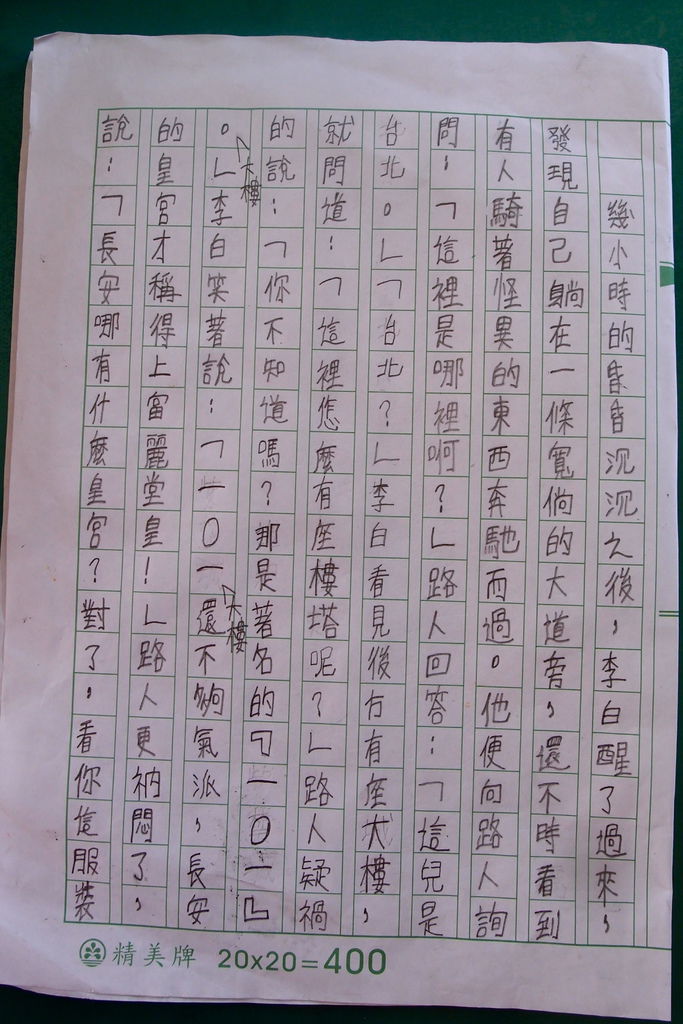 幾小時的昏昏沉沉之後，李白醒了過來，
發現自己躺在一條寬倘的大道旁，還不時看到
有人騎著怪異的東西奔馳而過。他便向路人詢
問：「這裡是哪裡啊？」路人回答：「這兒是
台北。」「台北？」李白看見後方有座大樓，
就問道：「這裡怎麼有座樓塔呢？」路人疑禍
的說：「你不知道嗎？那是著名的『一〇一』
大樓。」李白笑著說：「一〇一大樓還不夠氣派，長安
的皇宮才稱得上富麗堂皇！」路人更衲悶了，
說：「長安哪有什麼皇宮？對了，看你這服裝
精美牌 20x20=400